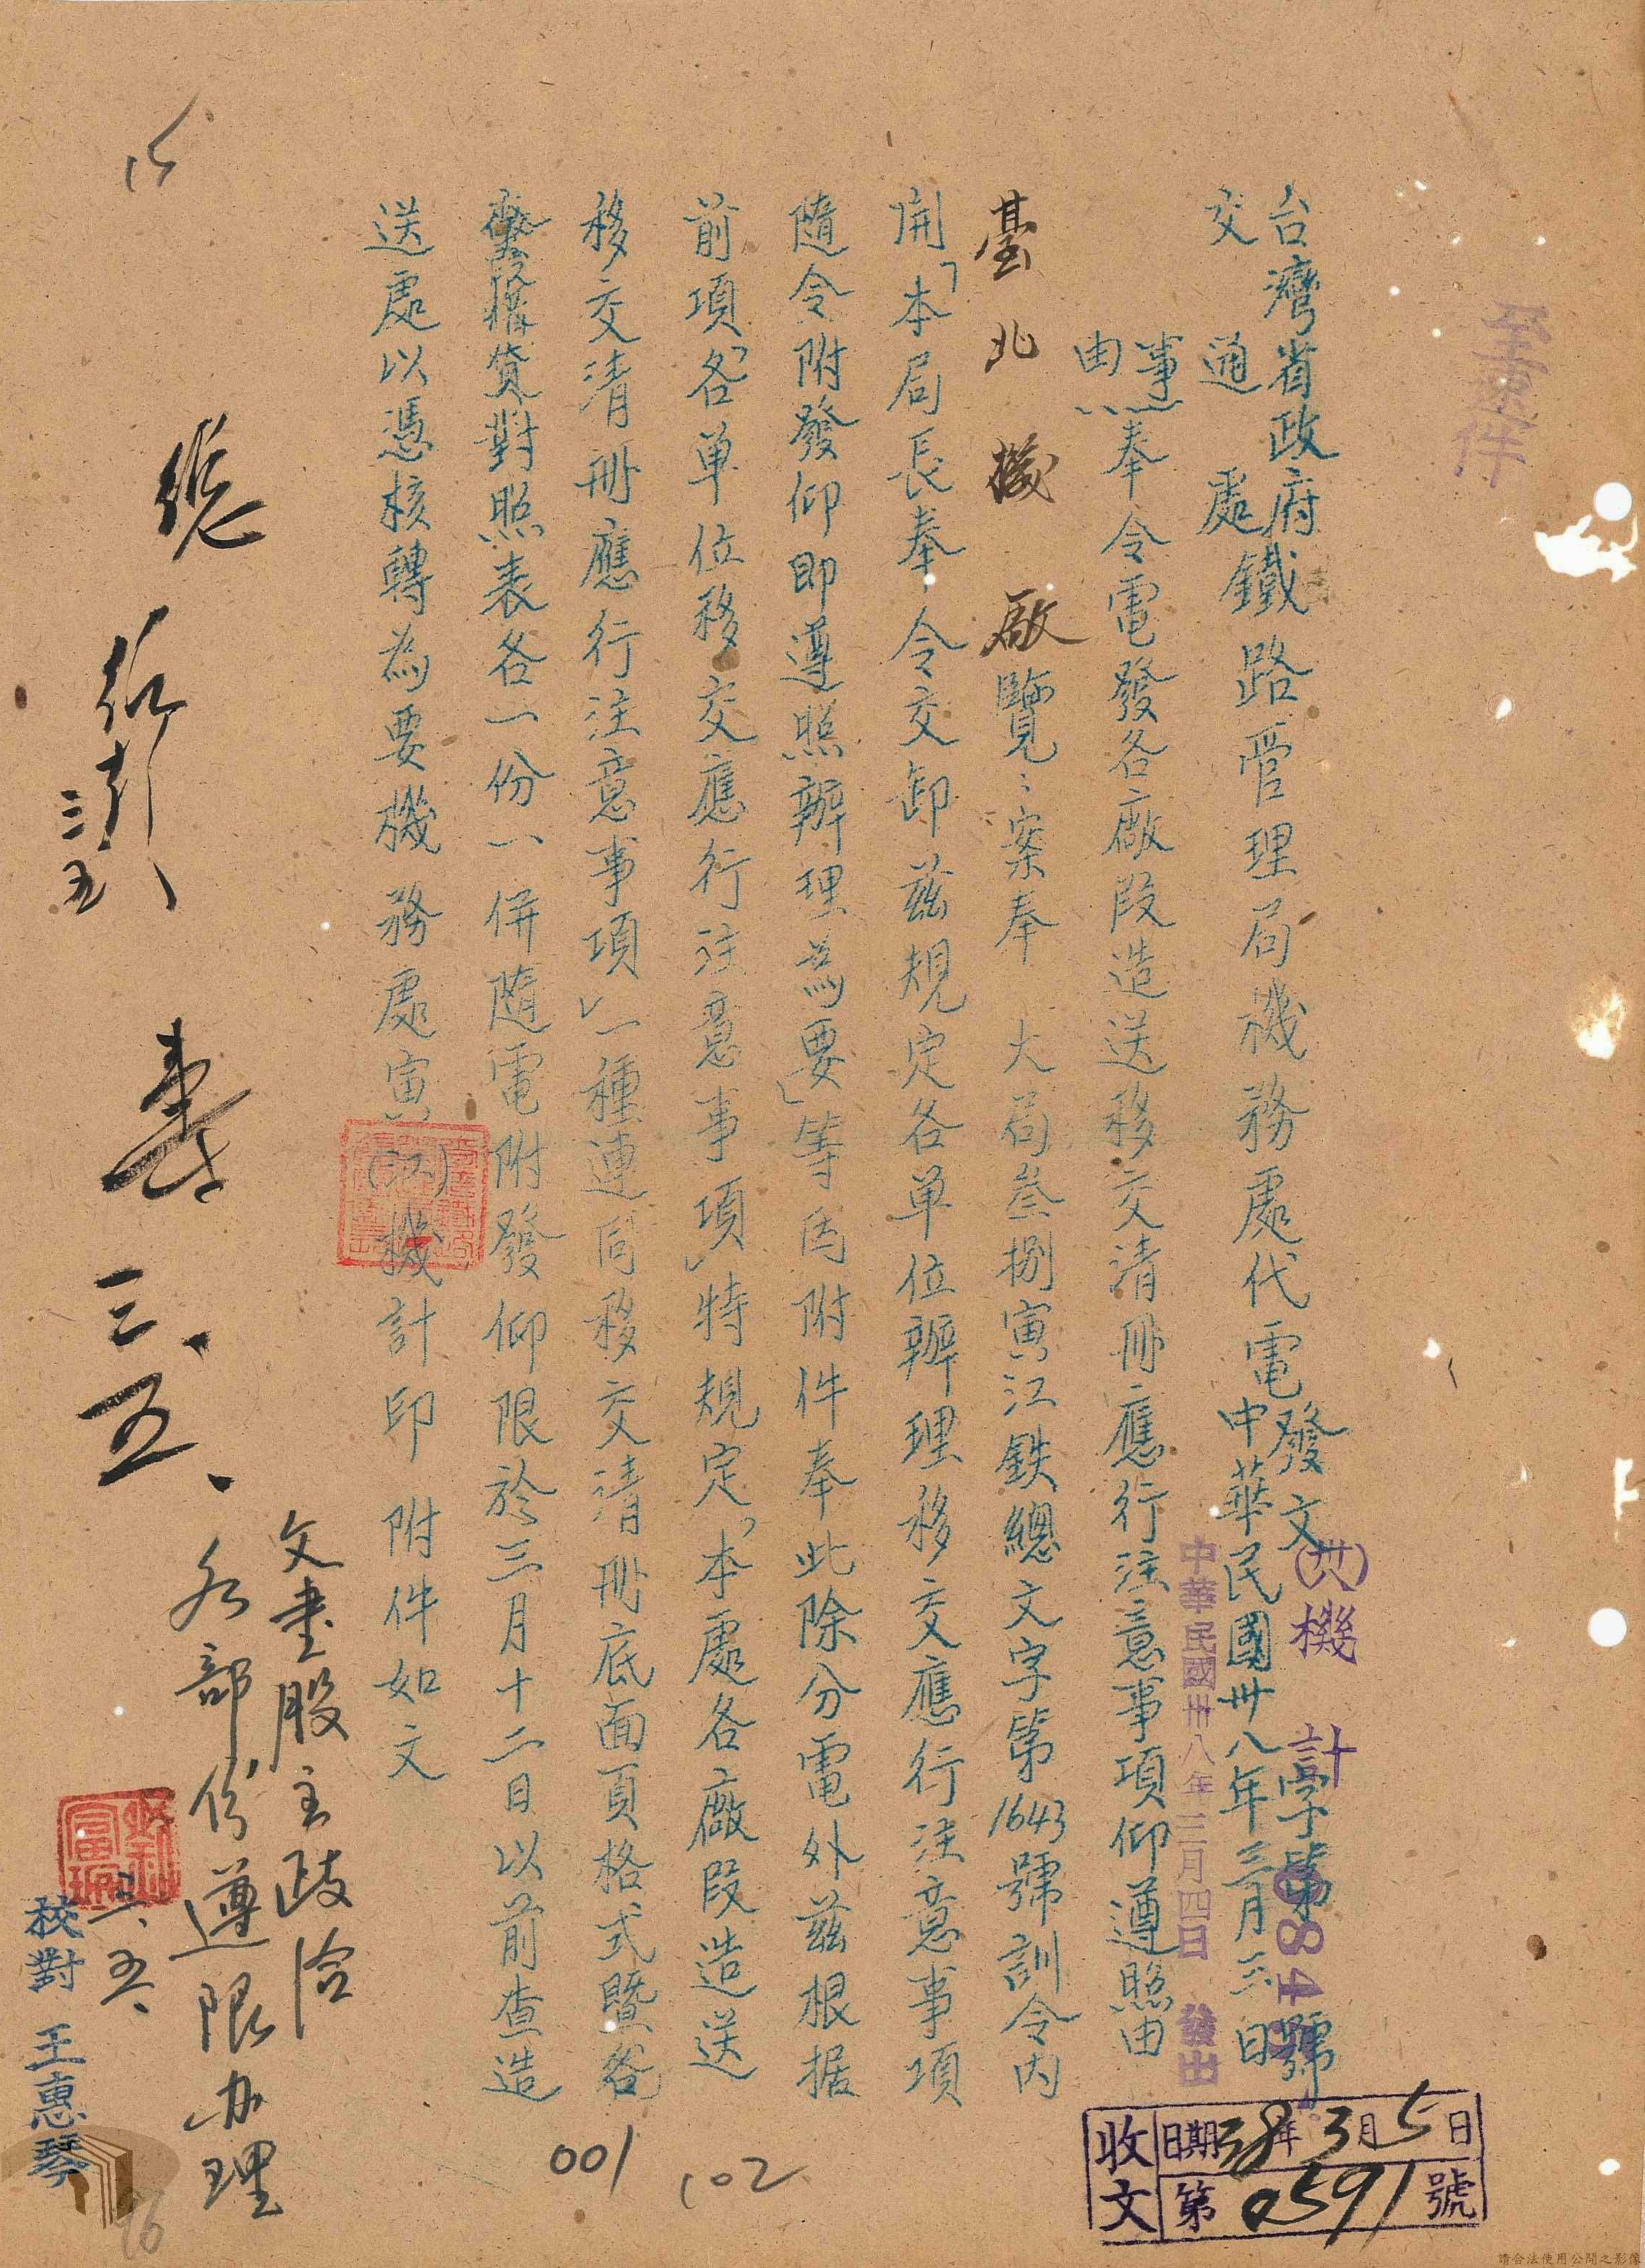 至速件
台灣省政府鐵路管理局機務處代電
交通處
發文(卅八)機計字第0845號
中華民國卅八年三月三日
中華民國卅八年三月四日發出
事由:奉令電發各廠段造送移交清冊應行注意事項仰遵照由
臺北機厰覽:案奉 大局叁捌寅江鉄總文字第1643號訓令內
開「本局長奉令交卸茲規定各單位辦理移交應行注意事項
隨令附發仰即遵照辦理為要」等因附件奉此除分電外茲根据
前項「各單位移交應行注意事項」特規定「本處各廠段造送
移交清冊應行注意事項」一種連同移交清冊底面頁格式暨
對照表各一份一併隨電附發仰限於三月十二日以前查造
送處以憑核轉為要機務處寅(江)機計印附件如文
總
三五
三、五、
文書股主政洽
各部份遵限办理
三、五、
校對 王惠琴
收文 日期38年3月5日
第0591號
001
102
15
16
請合法使用公開之影像